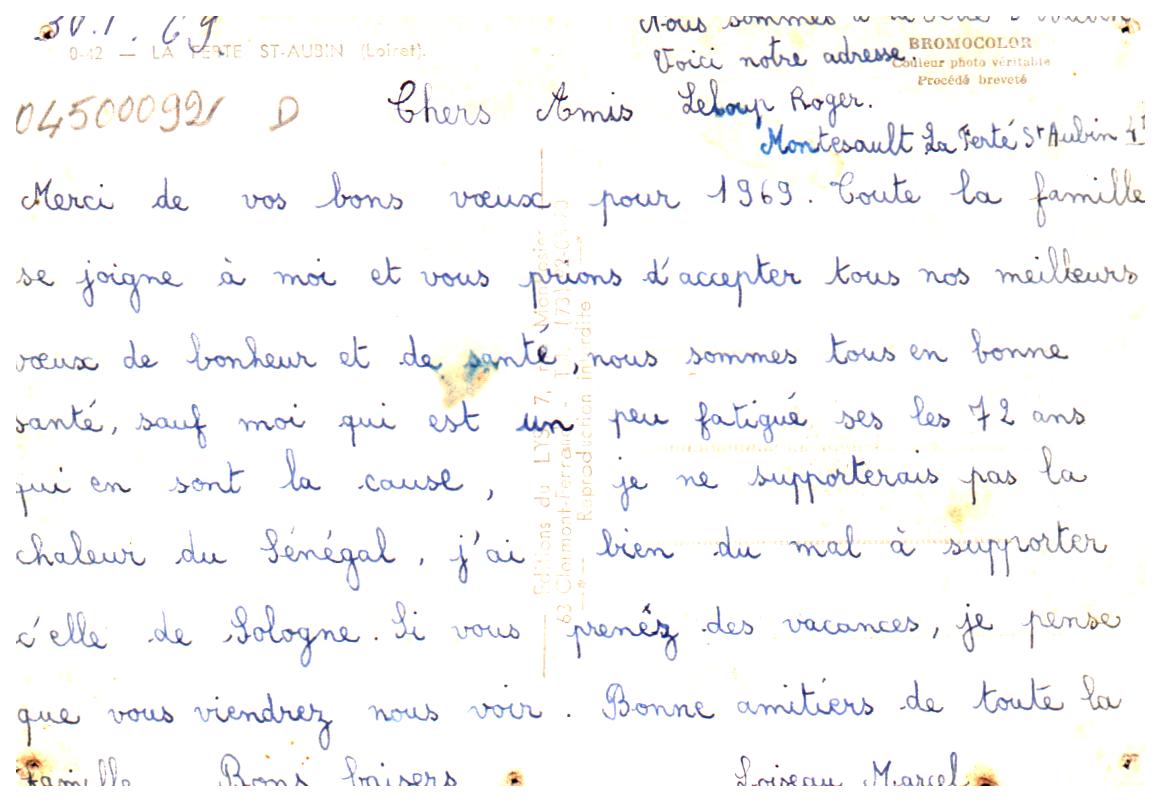 30.1.69
0-42 — LA FERTE ST-AUBIN (Loiret).
Nous sommes à la Ferté St Aubin
Voici notre adresse.
BROMOCOLOR
Couleur photo véritable
Procédé breveté
04500092 D
Chers Amis Leloup Roger.
Montesault La Ferté St Aubin
Merci de vos bons vœux pour 1969. Toute la famille
se joigne à moi et vous prions d'accepter tous nos meilleurs
vœux de bonheur et de santé, nous sommes tous en bonne
santé, sauf moi qui est un peu fatigué ses les 72 ans
qui en sont la cause, je ne supporterais pas la
chaleur du Sénégal, j'ai bien du mal à supporter
c'elle de Sologne. Si vous prenéz des vacances, je pense
que vous viendrez nous voir. Bonne amitiérs de toute la
famille Bons baisers Loiseau Marcel
Editions du LYS 7,
63 Clermont-Ferrand - (73)
Reproduction interdite